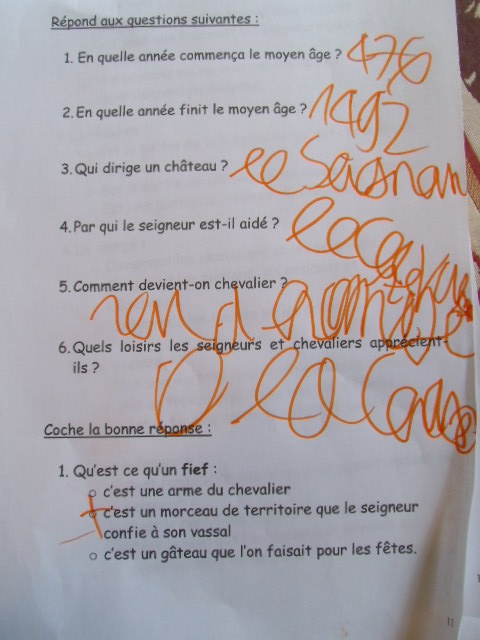 Répond aux questions suivantes :
1. En quelle année commença le moyen âge ? 476
2. En quelle année finit le moyen âge ? 1492
3. Qui dirige un château ? le Seignan
4. Par qui le seigneur est-il aidé ?
5. Comment devient-on chevalier ?
6. Quels loisirs les seigneurs et chevaliers apprécient-
ils ?
Coche la bonne réponse :
1. Qu'est ce qu'un fief :
c'est une arme du chevalier
c'est un morceau de territoire que le seigneur
confie à son vassal
c'est un gâteau que l'on faisait pour les fêtes.
11